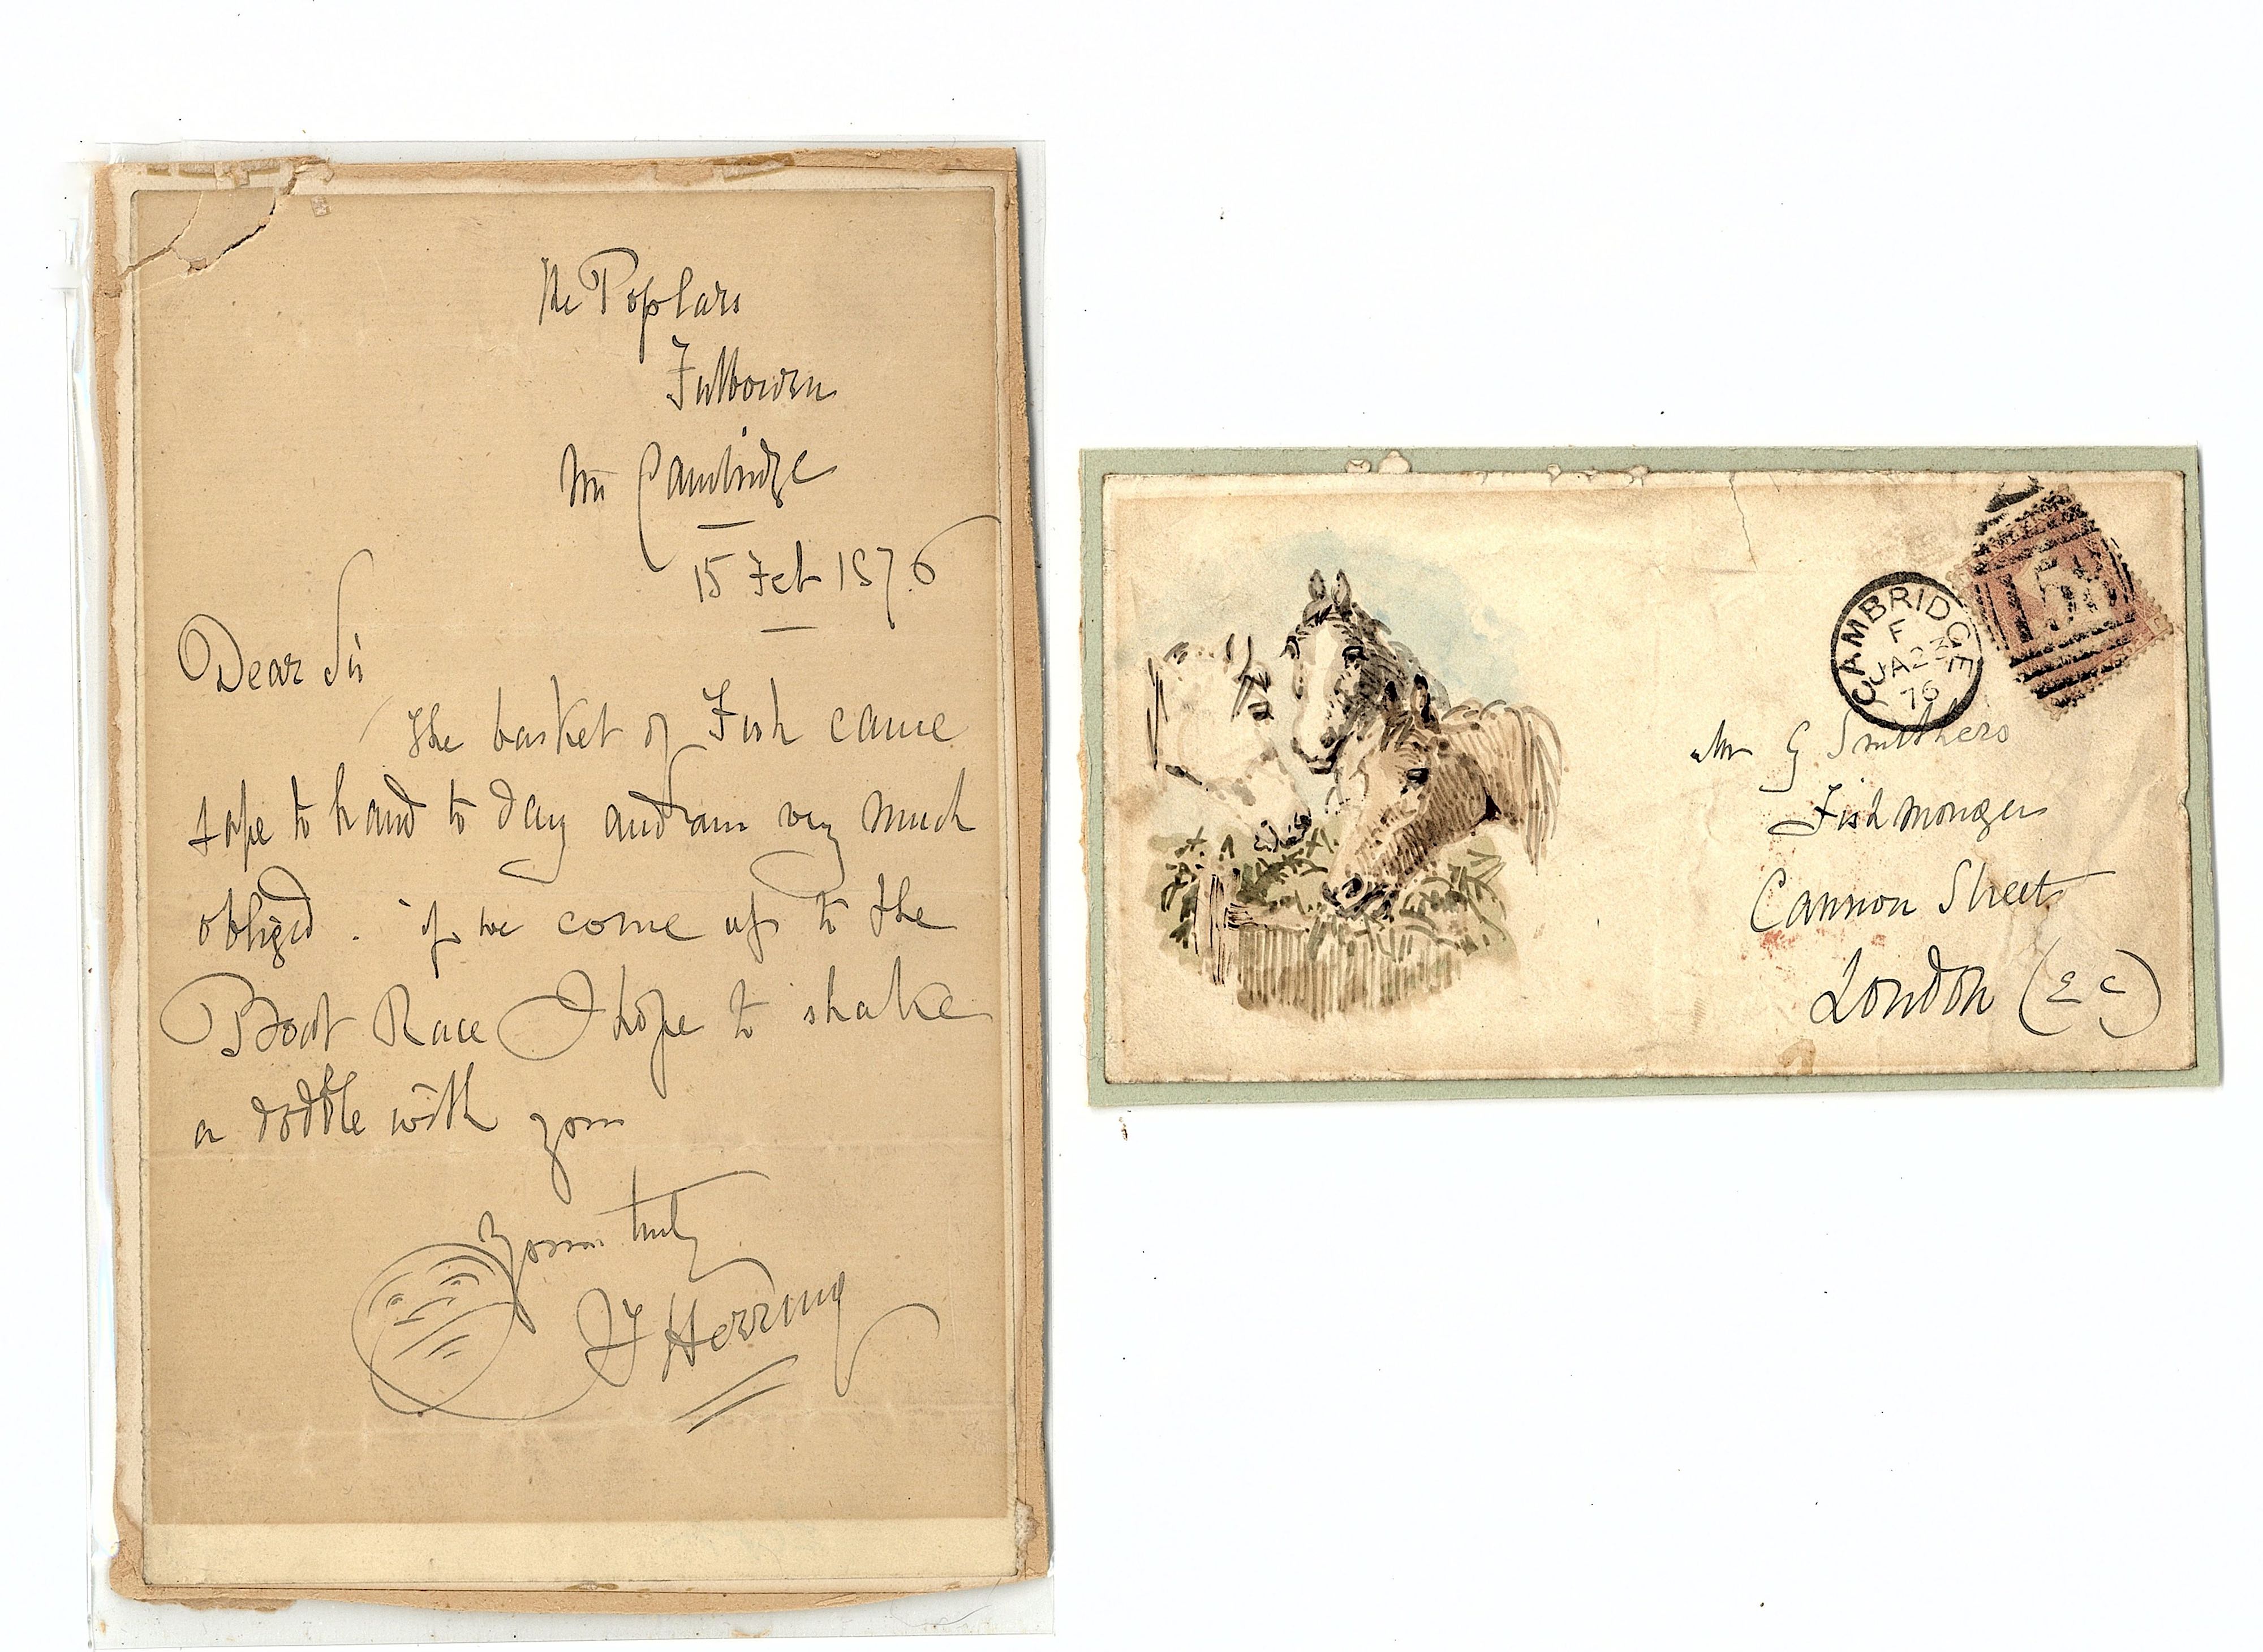 The Poplars
Fulbourn
Nr Cambridge
15 Feb 1876
Dear Sir
The basket of Fish came
safe to hand to day and am very much
obliged . if we come up to the
Boat Race I hope to shake
a dodble with you
Yours truly
JF Herring
CAMBRIDGE
F
JA 23
76
Mr G Smithers
Fishmonger
Cannon Street
London (EC)